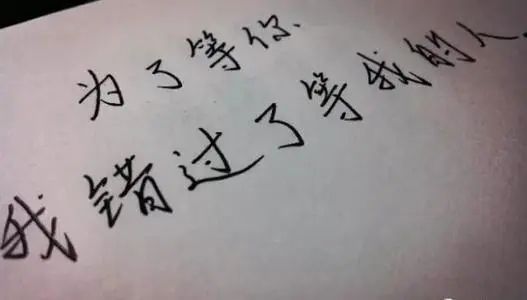 为了等你.
我错过了等我的人.